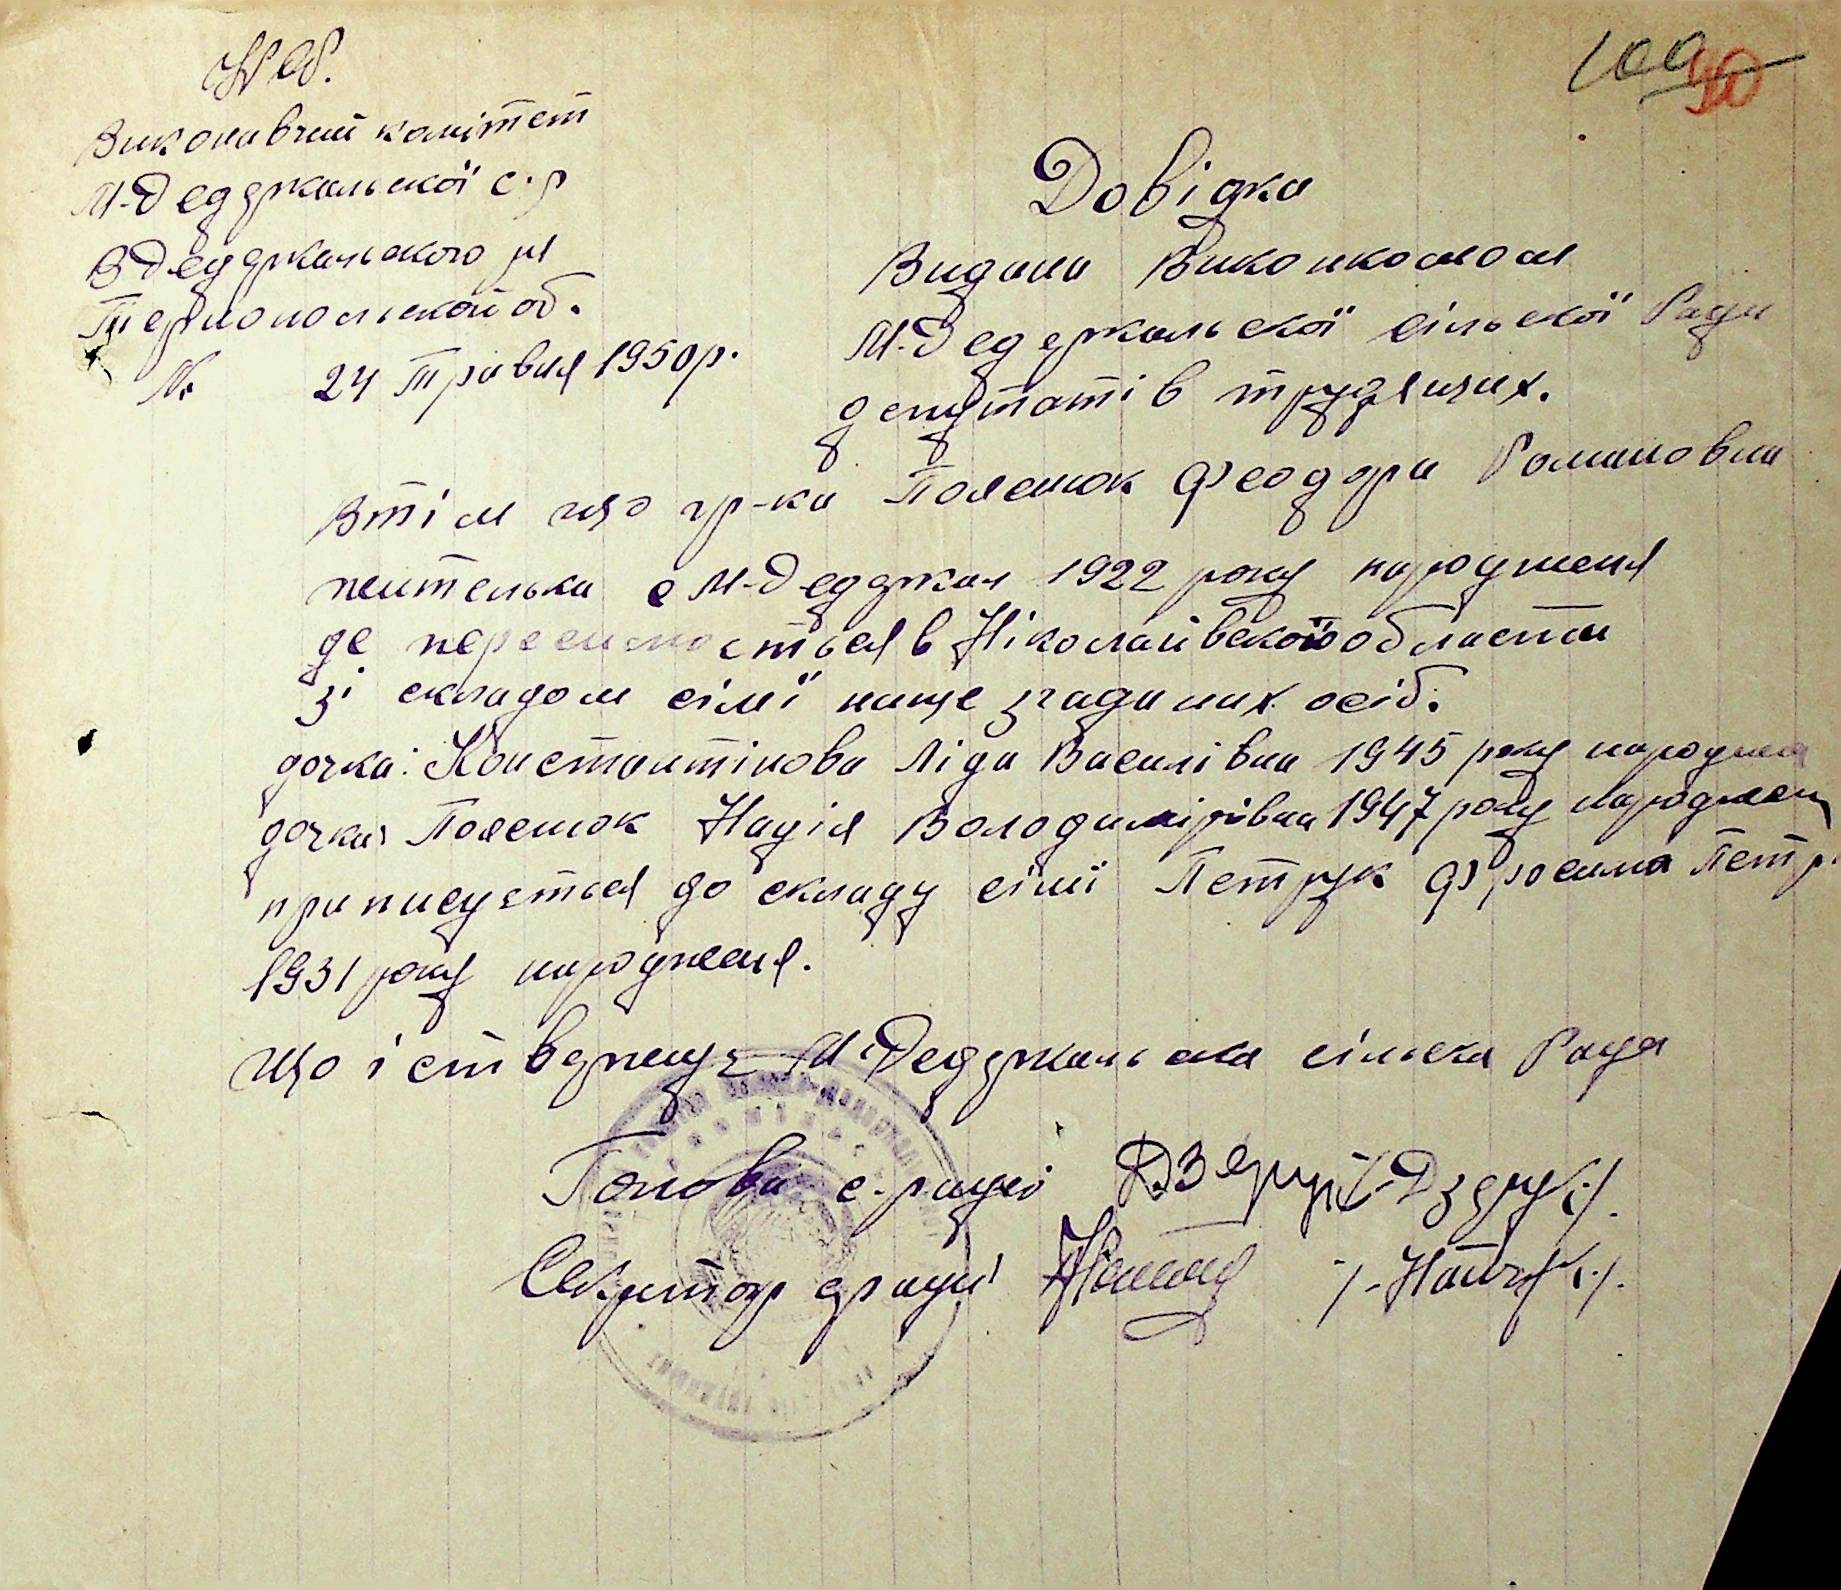 Виконавчий комітет
М-Дедеркальської с.р
ВДедеркальского р-н
Тернопольской об.
№ 24 Травня 1950 р.
100
90
Довідка
Видана Виконкомом
М-Дедеркальскої сільскої Ради
депутатів трудящих.
Втім що гр-ка Полещюк Феодора Романовна
жителька с М-Дедеркал 1922 року народженя
де переселяється в Ніколаївской области
зі складом сімї нище згаданих осіб.
дочка: Константінова Ліда Василівна 1945 року народженя
дочка: Полещюк Надія Володимірівна 1947 року народжен
приписуєтся до складу сімї Петрук Фросина Петр.
1931 року народженя.
Що і стверджує М Дедеркальска сільска Рада
Голова с-ради Дзерук /-Дзерук-/.
Секретар сради /-Найчук-/.